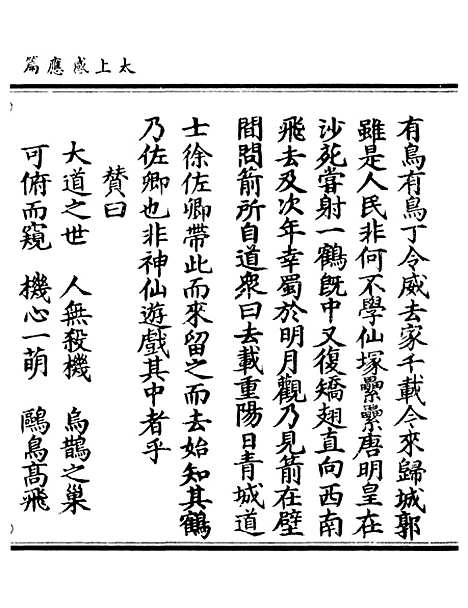 太上感應篇
有鳥有鳥丁令威去家千載今來歸城郭
雖是人民非何不學仙塚纍纍唐明皇在
沙苑嘗射一鶴旣中又復矯翅直向西南
飛去及次年幸蜀於明月觀乃見箭在壁
間問箭所自道衆曰去載重陽日青城道
士徐佐卿帶此而來留之而去始知其鶴
乃佐卿也非神仙遊戲其中者乎
賛曰
大道之世 人無殺機 烏鵲之巢
可俯而窺 機心一萌 鷗鳥髙飛